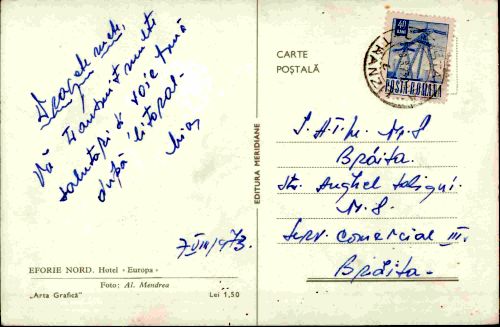 Dragele mele,
Vă transmit multe
salutări și voie bună
după litoral.
7 VIII 973.
EFORIE NORD. Hotel «Europa»
Foto: Al. Mendrea
„Arta Grafică" Lei 1,50
EDITURA MERIDIANE
CARTE
POȘTALĂ
40
BANI
POSTA ROMANA
TRANZIT
Brăila.
Str. Anghel Saligni.
Serv. Comercial III.
Brăila.